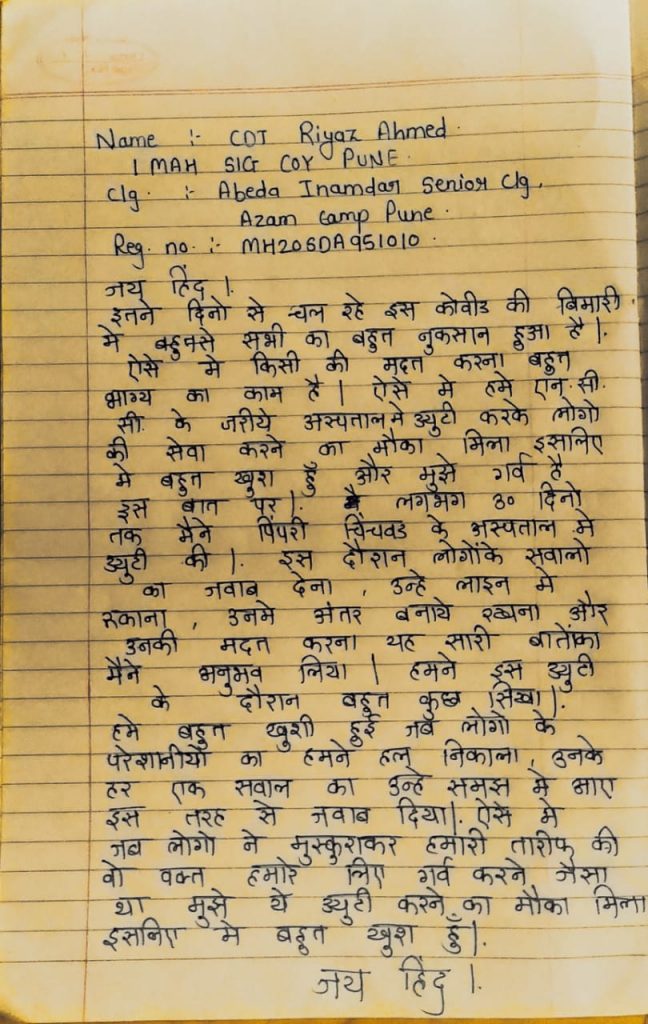 Name :- CDT Riyaz Ahmed.
1 MAH SIG COY PUNE.
Clg. :- Abeda Inamdar Senior Clg.
Azam Camp Pune.
Reg. no. :- MH20SDA951010.
जय हिंद |.
इतने दिनो से चल रहे इस कोवीड की बिमारी.
मे सभी का बहुत नुकसान हुआ है |.
ऐसे मे किसी की मदत करना बहुत
भाग्य का काम है | ऐसे मे हमे एन. सी.
सी. के जरीये अस्पताल मे ड्युटी करके लोगो
की सेवा करने का मौका मिला इसलिए
मे बहुत खुश हुँ और मुझे गर्व है
इस बात पर |. लगभग ३० दिनो
तक मैने पिंपरी चिंचवड के अस्पताल मे
ड्युटी की |. इस दौरान लोगोंके सवालो
का जवाब देना , उन्हे लाइन मे
रुकाना , उनमे अंतर बनाये रखना और
उनकी मदत करना यह सारी बातोंका
मैने अनुभव लिया | हमने इस ड्युटी
के दौरान बहुत कुछ सिखा |.
हमे बहुत खुशी हुई जब लोगो के
परेशानीयों का हमने हल निकाला , उनके
हर एक सवाल का उन्हे समझ मे आए
इस तरह से जवाब दिया |. ऐसे मे
जब लोगो ने मुस्कुराकर हमारी तारीफ की
वो वक्त हमारे लिए गर्व करने जैसा
था मुझे ये ड्युटी करने का मौका मिला
इसलिए मे बहुत खुश हुँ |.
जय हिंद |.